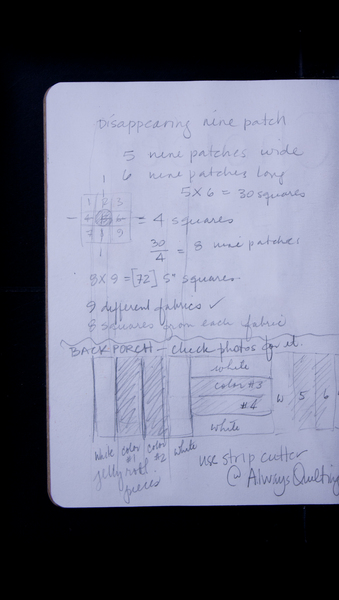 Disappearing nine patch
5 nine patches wide
6 nine patches long
5 X 6 = 30 squares
1 2 3
4 5 6 = 4 squares
7 8 9
30/4 = 8 nine patches
8 X 9 = [72] 5" squares
9 different fabrics ✓
8 squares from each fabric
BACK PORCH - check photos for it.
white
color #3
#4
white
W 5 6
white color #1 color #2 white
jelly roll pieces
use strip cutter
@ Always Quilting